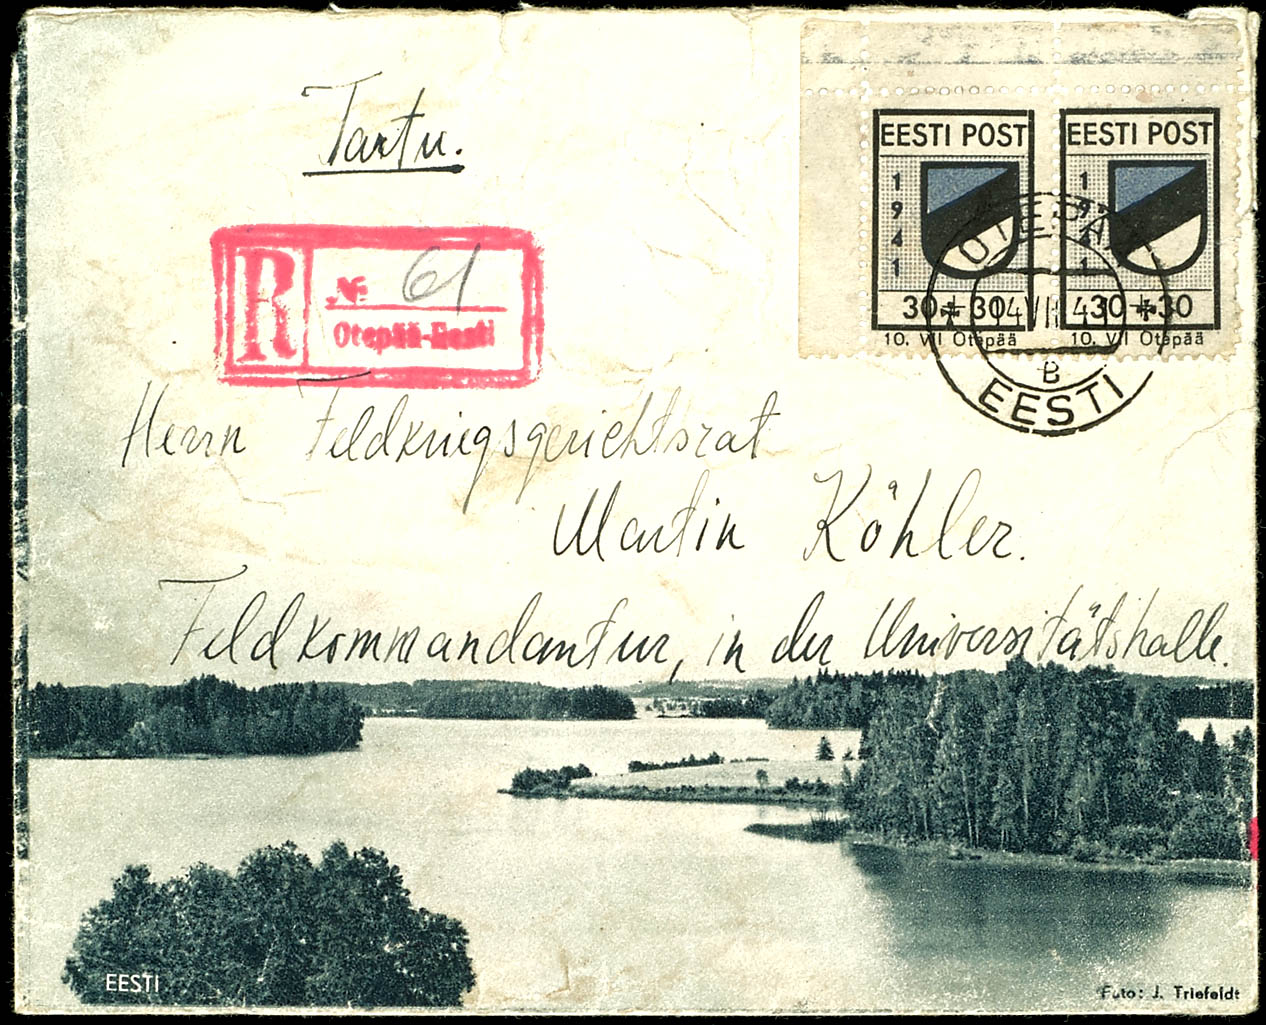 Tartu.
EESTI POST
1941
30+30
10. VII Otepää
EESTI POST
1941
30+30
10. VII Otepää
OTEPÄÄ
14 VII 41
B
EESTI
R
№ 61
Otepää-Eesti
Herrn Feldkriegsgerichtsrat
Martin Köhler.
Feldkommandantur, in der Universitätshalle.
EESTI
Foto: J. Triefeldt